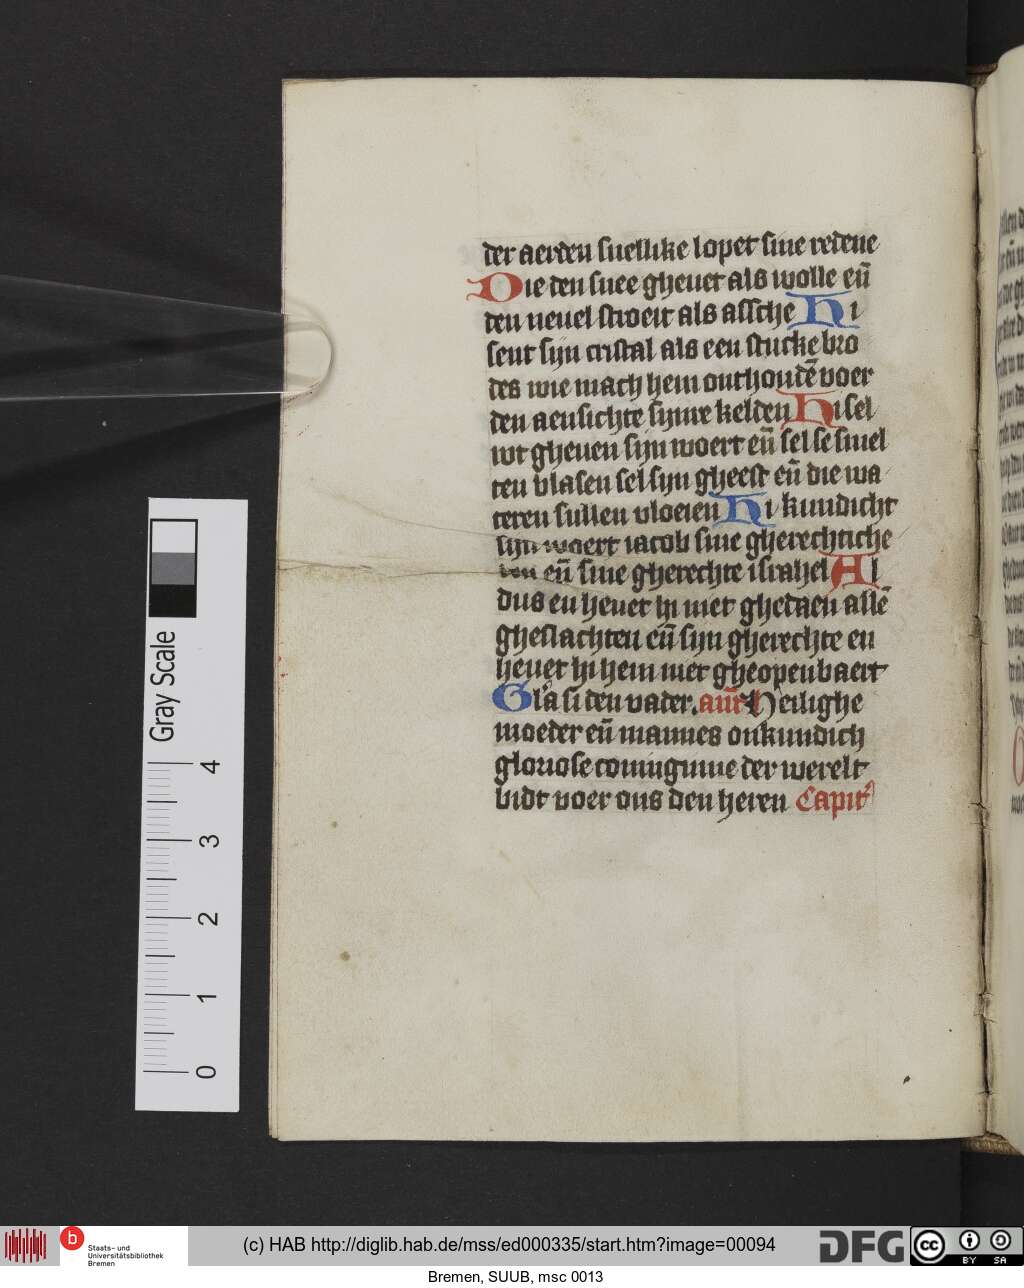 der aerden snellike lopet sine redene
Die den snee gheuet als wolle eñ
den neuel stroeit als assche Hi
sent sijn cristal als een stucke bro
des wie mach hem onthoudē voer
den aensichte synre kelden Hi sel
wt gheuen sijn woert eñ sel se smel
ten blasen sel sijn gheest eñ die wa
teren sullen vloeien Hi kundicht
sijn woert iacob sine gherechtiche
den eñ sine gherechte israhel Al
dus en heuet hi niet ghedaen allē
gheslachten eñ sijn gherechte en
heuet hi hem niet gheopenbaert
Gl'a si den vader. Heilighe
moeder eñ mannes onkundich
gloriose coninginne der werelt
bidt voer ons den heren Capit'
Gray Scale
4
3
2
1
0
b
Staats- und
Universitätsbibliothek
Bremen
(c) HAB http://diglib.hab.de/mss/ed000335/start.htm?image=00094
DFG
cc
BY SA
Bremen, SUUB, msc 0013